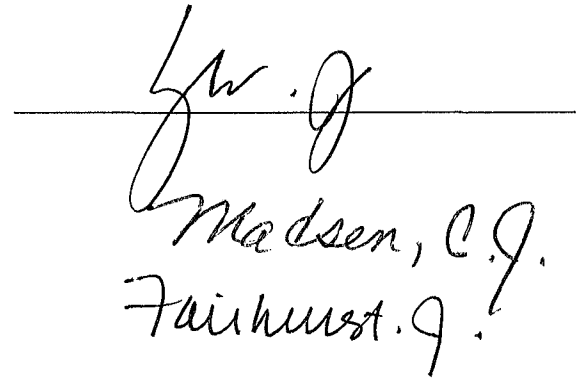 J.
Madsen, C.J.
Fairhurst. J.